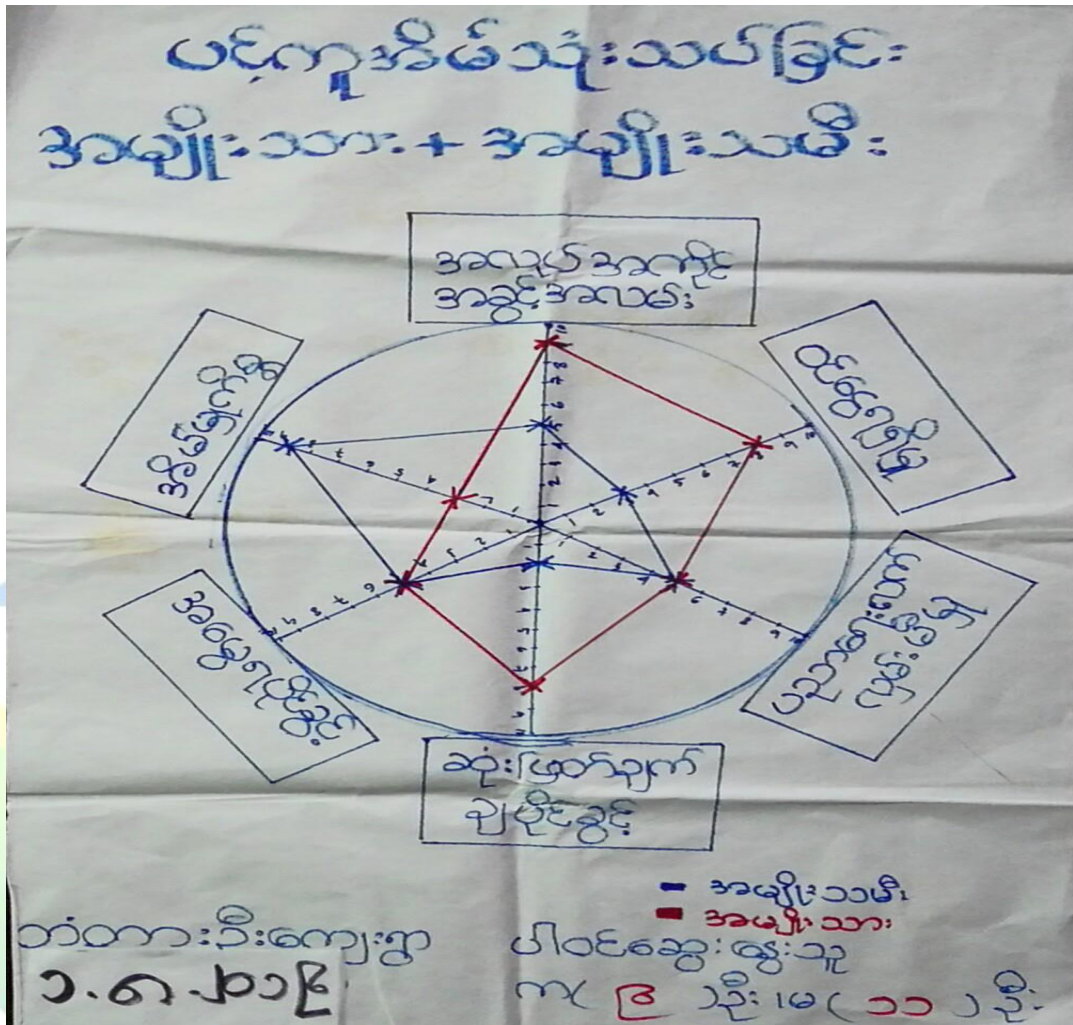 ပင့်ကူအိမ်သုံးသပ်ခြင်း
အမျိုးသား + အမျိုးသမီး
အလုပ်အကိုင်
အခွင့်အလမ်း
ဝင်ငွေရရှိမှု
ပညာရေးလက်
လှမ်းမီမှု
ဆုံးဖြတ်ချက်
ချပိုင်ခွင့်
အမွေရပိုင်ခွင့်
အိမ်မှုကိစ္စ
အမျိုးသမီး
အမျိုးသား
တံတားဦးကျေးရွာ
ပါဝင်ဆွေးနွေးသူ
ကျ( ၉ )ဦး ၊ မ ( ၁၁ ) ဦး